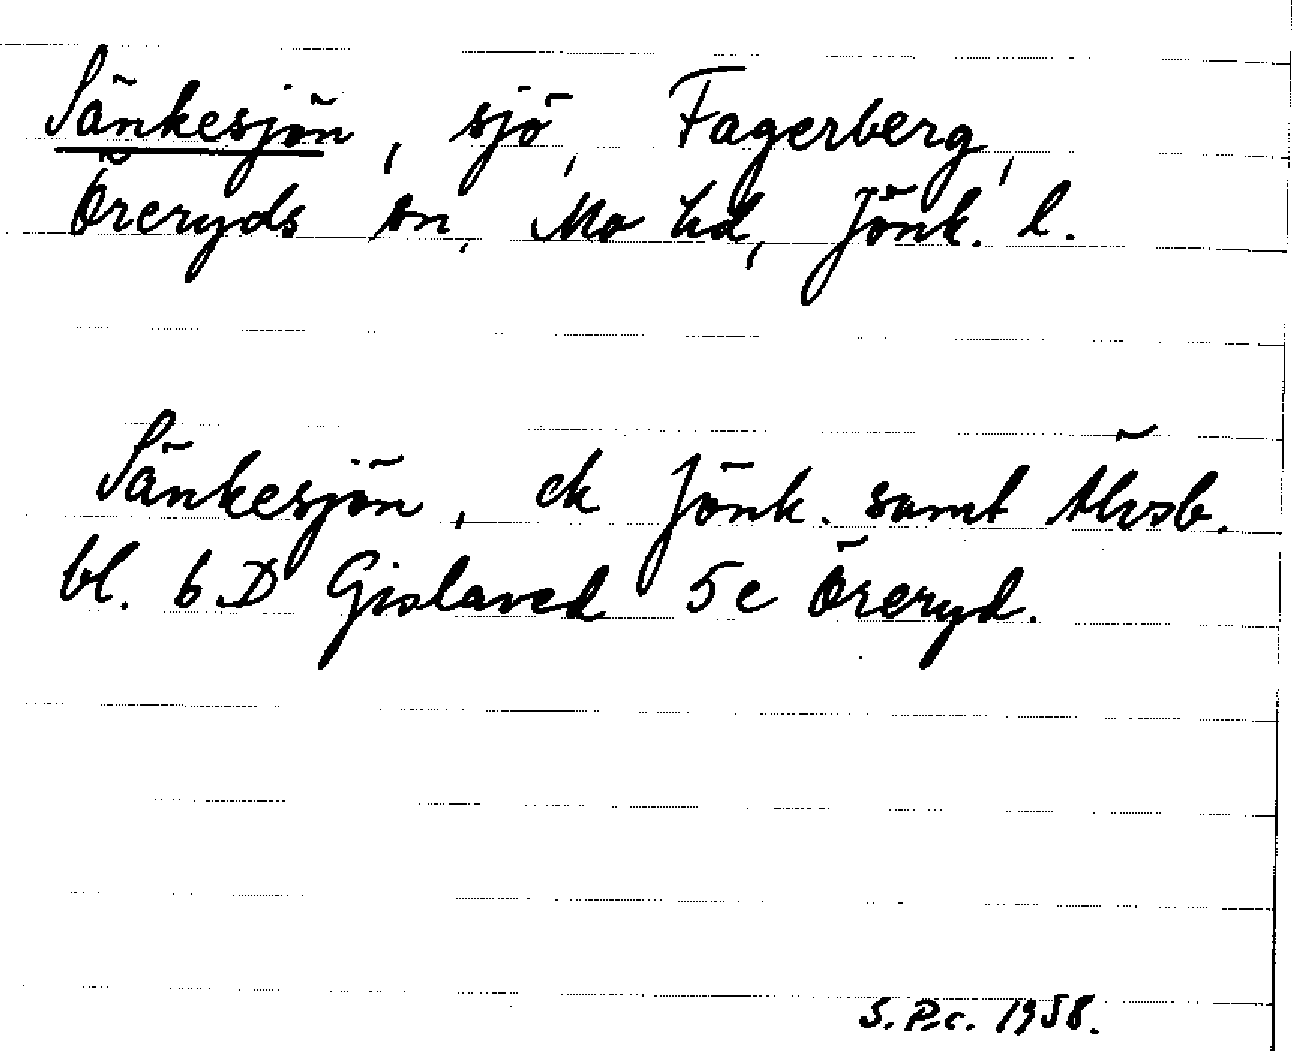 Sänkesjön, sjö, Fagerberg,
Öreryds sn, Mo hd, Jönk. l.
Sänkesjön, ek Jönk. samt Älvsb.
bl. 6 D Gislaved 5e Öreryd.
1958.